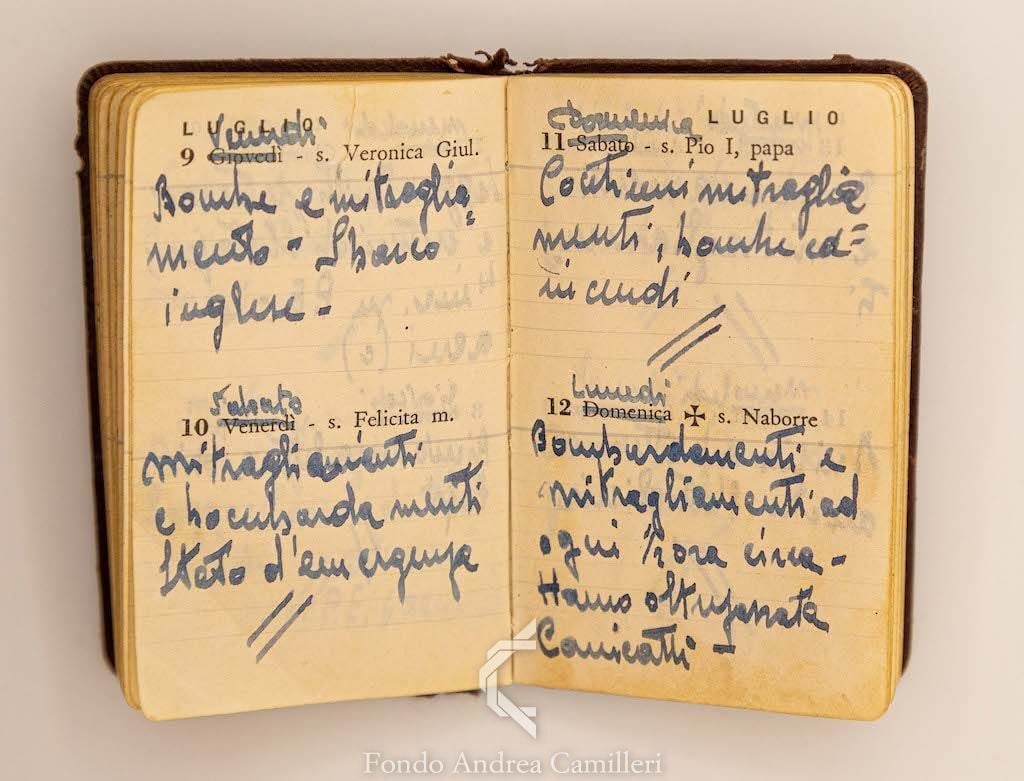 LUGLIO
Venerdi
9 Giovedì - s. Veronica Giul.
Bombe e mitraglia=
mento - Sbarco
inglese -
Sabato
10 Venerdì - s. Felicita m.
mitragliamenti
e bombardamenti
Stato d'emergenza
//
LUGLIO
Domenica
11 Sabato - s. Pio I, papa
Continui mitraglia
menti, bombe ed=
incendi
//
Lunedi
12 Domenica ✠ s. Naborre
Bombardamenti e
mitragliamenti ad
ogni ora circa -
Hanno oltrepassata
Canicatti -
Fondo Andrea Camilleri